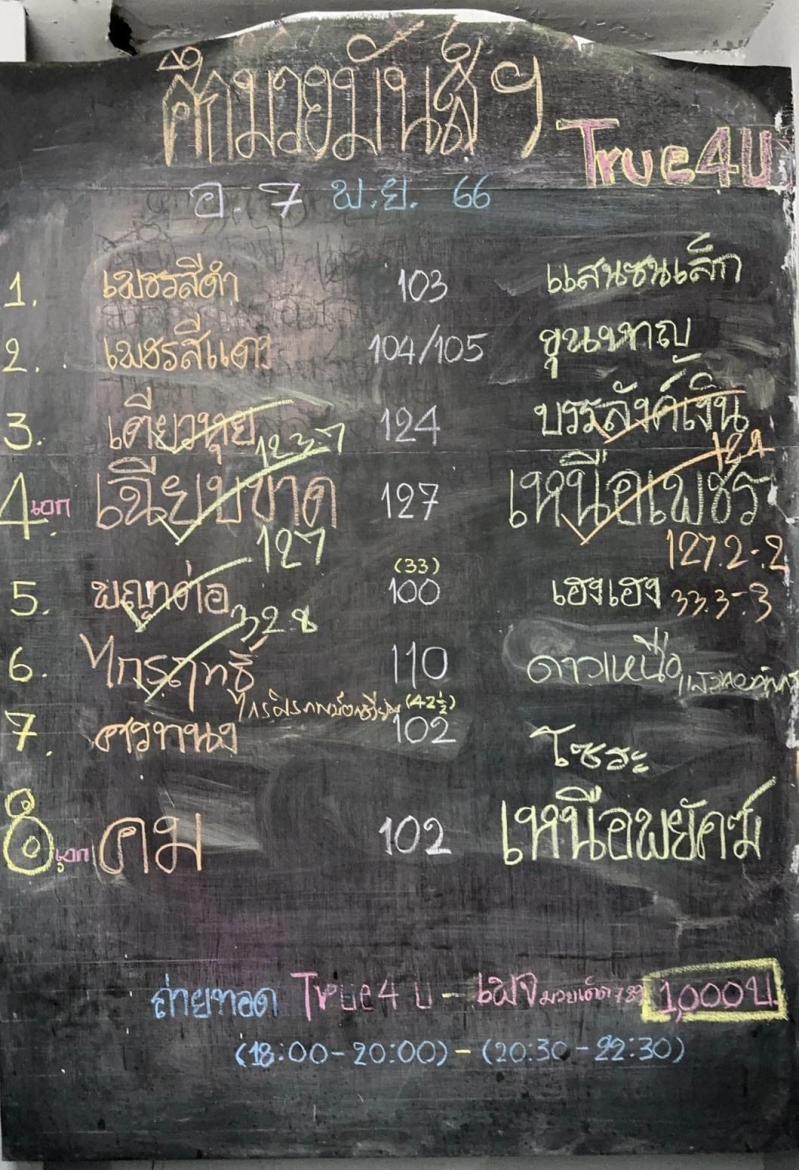 ศึกมวยมันส์ฯ
True4U
อ. 7 พ.ย. 66
1. เพชรสีดำ 103 แสนซนเล็ก
2. เพชรสีแดง 104/105 ขุนหาญ
3. เดียวหุย 124 บรรลังค์เงิน
123.7 124
4 เอก. เฉียบขาด 127 เหนือเพชร
127 127.2-.2
5. พญาต่อ (33) 100 เฮงเฮง 33.3-.3
32.8
6. ไกรฤทธิ์ 110 ดาวเหนือ
(42½)
7. ศรทนง 102 โซระ
8 เอก คม 102 เหนือพยัคฆ์
ถ่ายทอด True4U - เพจ มวยเด็ด 789 1,000 บ.
(18:00-20:00) - (20:30-22:30)